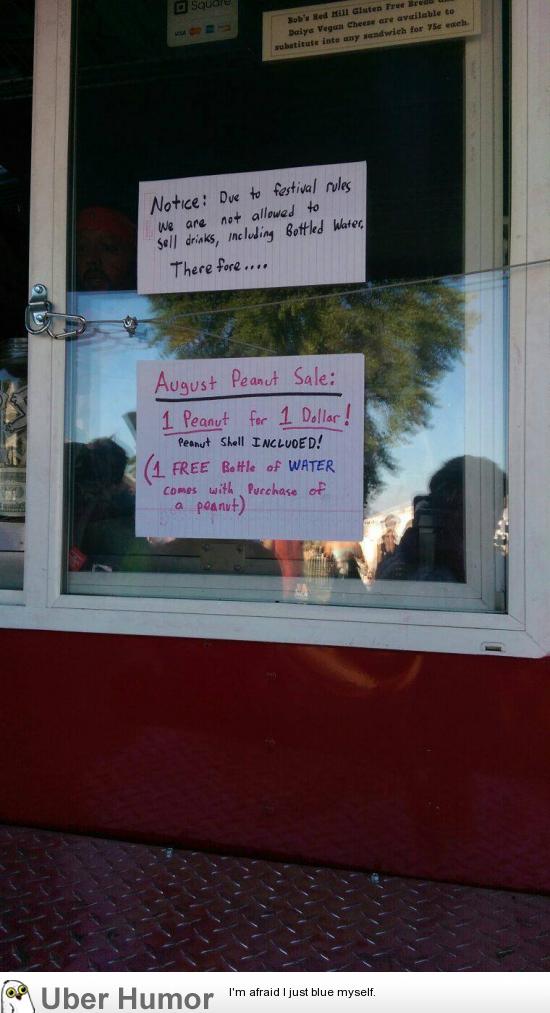 Square
VISA
Bob's Red Mill Gluten Free Bread and
Daiya Vegan Cheese are available to
substitute into any sandwich for 75¢ each.
Notice: Due to festival rules
We are not allowed to
Sell drinks, including Bottled Water.
Therefore....
August Peanut Sale:
1 Peanut for 1 Dollar!
Peanut Shell INCLUDED!
(1 FREE Bottle of WATER
comes with Purchase of
a peanut)
Uber Humor
I'm afraid I just blue myself.